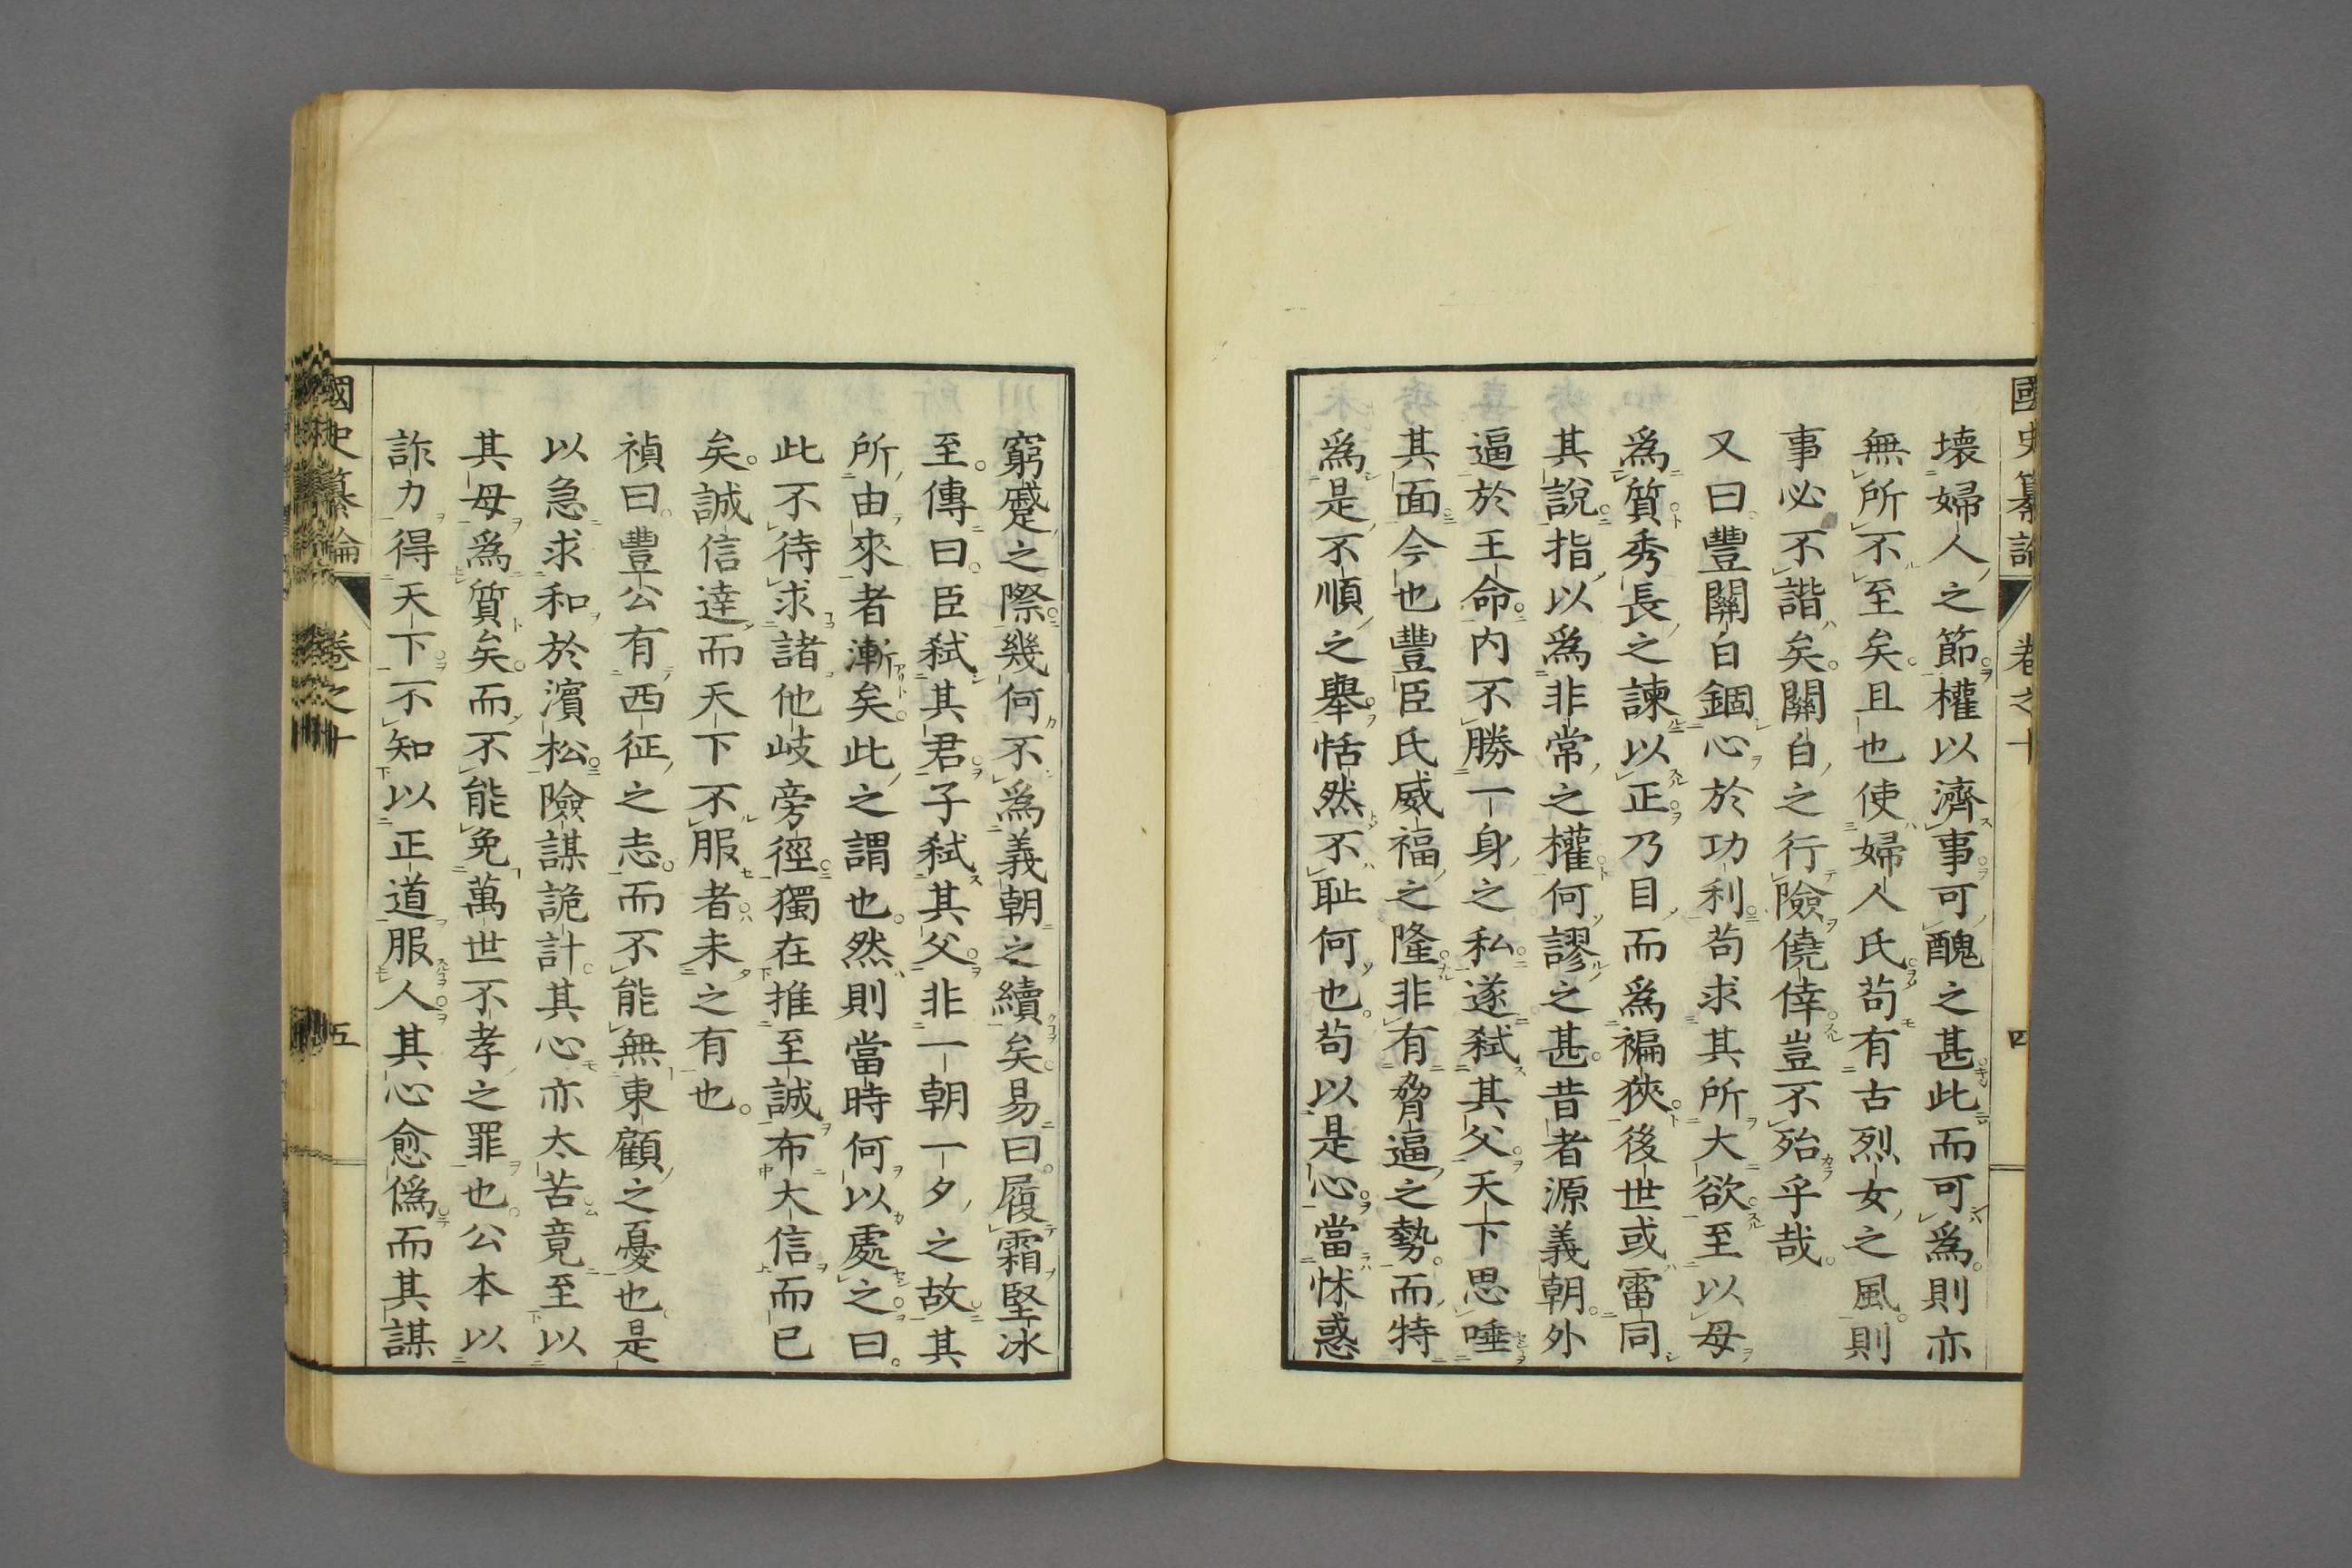 國史纂論 卷之十 四
壞婦人之節權以濟事可醜之甚此而可爲則亦
無所不至矣且也使婦人氏苟有古烈女之風則
事必不諧矣關白之行險僥倖豈不殆乎哉
又曰豐關白錮心於功利苟求其所大欲至以母
爲質秀長之諫以正乃目而爲褊狹後世或雷同
其說指以爲非常之權何謬之甚昔者源義朝外
逼於王命内不勝一身之私遂弑其父天下思唾
其面今也豐臣氏威福之隆非有脅逼之勢而特
爲是不順之舉恬然不耻何也苟以是心當怵惑
窮蹙之際幾何不爲義朝之續矣易曰履霜堅冰
至傳曰臣弑其君子弑其父非一朝一夕之故其
所由來者漸矣此之謂也然則當時何以處之曰
此不待求諸他岐旁徑獨在推至誠布大信而已
矣誠信達而天下不服者未之有也
禎曰豐公有西征之志而不能無東顧之憂也是
以急求和於濱松險謀詭計其心亦太苦竟至以
其母爲質矣而不能免萬世不孝之罪也公本以
詐力得天下不知以正道服人其心愈僞而其謀
國史纂論 卷之十 五